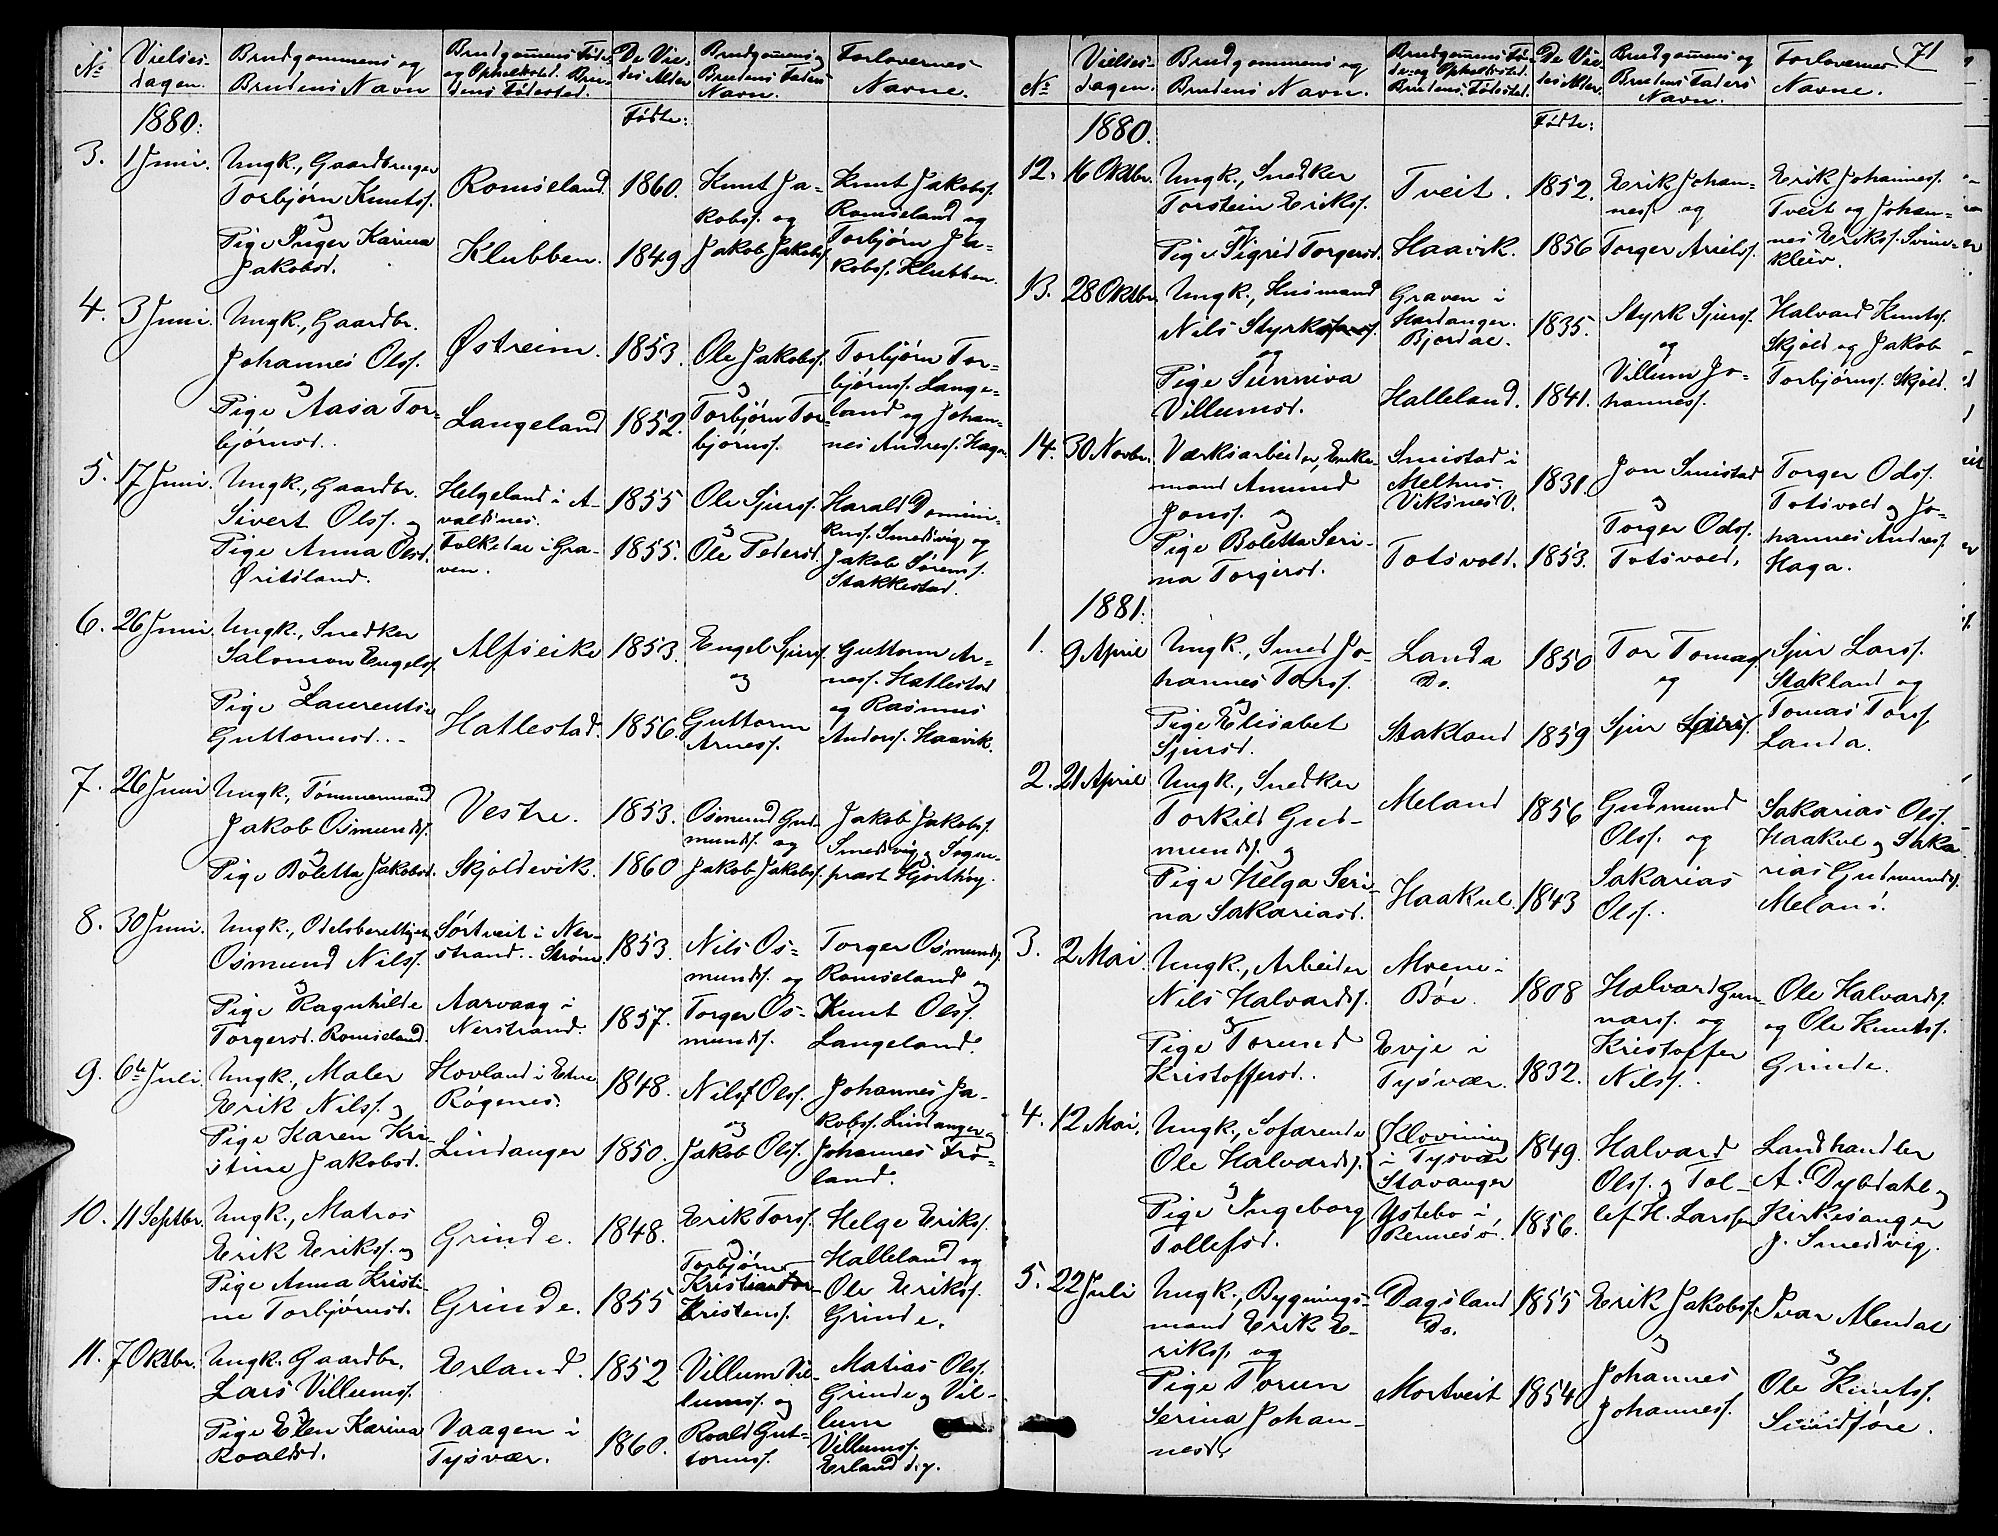 No
Vielses-
dagen.
Brudgommens og
Brudens Navn
Brudgommens Føde-
og Opholdsted. Bru-
dens Fødested.
De Vie-
des Alder
Brudgommens og
Brudens Faders
Navn.
Forlovernes
Navne.
1880.
Fødte:
3.
1 Juni.
Ungk., Gaardbruger
Torbjørn Knuts.
og
Pige Inger Karina
Jakobsd.
Romseland.
Klubben.
1860.
1849
Knut Ja-
kobss. og
Jakob Jakobs.
Knut Jakobs.
Romseland og
Torbjørn Ja-
kobss. Klubben.
4.
3 Juni.
Ungk., Gaardbr.
Johannes Olss.
og
Pige Aasa Tor-
bjørnsd.
Østreim.
Langeland
1853.
1852.
Ole Jakobs.
og
Torbjørn Tor-
bjørnss.
Torbjørn Tor-
bjørnss. Lange-
land og Johan-
nes Andress. Haga.
5.
17 Juni.
Ungk., Gaardbr.
Sivert Olss. og
Pige Anna Olsd.
Øritsland.
Helgeland i A-
valdsnes.
Folkedal i Gra-
ven.
1855
1855.
Ole Sjurss.
og
Ole Peders
Harald Domini-
kuss. Smedsvig og
Jakob Sørens.
Stakkestad.
6.
26 Juni.
Ungk., Snedker
Salomon Engels.
og
Pige Laurentse
Guttormsd.
Alfseike
Hatlestad.
1853.
1856.
Engel Sjurs.
og
Guttorm
Arness.
Guttorm Ar-
ness. Hatlestad
og Rasmus
Anderss. Haavik.
7.
26 Juni
Ungk., Tømmermand
Jakob Osmunds.
og
Pige Boletta Jakobsd.
Vestre.
Skjoldevik.
1853.
1860
Osmund Gud-
mundss. og
Jakob Jakobs.
Jakob Jakobs.
Smedsvig og Sogne-
præst Hjorthøy.
8.
30 Juni.
Ungk., Odelsberettiget
Osmund Nilss.
og
Pige Ragnhilde
Torgersd. Romseland.
Sørtveit i Ner-
strand. Strøm.
Aarvaag i
Nerstrand.
1853.
1857.
Nils Os-
mundss. og
Torger Os-
mundss.
Torger Osmunds.
Romseland og
Knut Olss.
Langeland.
9.
6te Juli
Ungk., Maler
Erik Nilss. og
Pige Karen Kri-
stine Jakobsd.
Hovland i Etne
Røgenes.
Lindanger
1848.
1850.
Nils Olss.
og
Jakob Olss.
Johannes Ja-
kobss. Lindanger og
Johannes Frø-
land.
10.
11 Septbr.
Ungk., Matros
Erik Erikss. og
Pige Anna Kristi-
ne Torbjørnsd.
Grinde.
Grinde.
1848.
1855
Erik Torss.
Torbjørn
Kristens.
Helge Erikss.
Halleland og
Ole Erikss.
Grinde.
11.
7 Oktbr.
Ungk. Gaardbr.
Lars Villumss.
og
Pige Elen Karina
Roaldsd.
Erland.
Vaagen i
Tysvær.
1852
1860.
Villum Vil-
lumss. og
Roald Gut-
tormss.
Matias Olss.
Grinde og Vil-
lum
Villumss.
Erland d.y.
71
No
Vielses-
dagen.
Brudgommens og
Brudens Navn.
Brudgommens Fø-
de- og Opholdssted.
Brudens Fødested.
De Vie-
des Alder.
Brudgommens og
Brudens Faders
Navn.
Forlovernes
Navne.
1880.
Fødte:
12.
16 Oktbr.
Ungk., Snedker
Torstein Erikss.
og
Pige Sigrid Torgersd.
Tveit.
Haavik.
1852.
1856
Erik Johan-
ness. og
Torger Arildss.
Erik Johanness.
Tveit og Johan-
nes Erikss. Svine-
kleiv.
13.
28 Oktbr.
Ungk., Husmand
Nils Styrks.
og
Pige Sunniva
Villumsd.
Graven i
Hardanger.
Bjordal.
Halleland.
1835.
1841.
Styrk Sjurs.
og
Villum Jo-
hanness.
Halvard Knuts.
Skjold og Jakob
Torbjørnss. Skjold.
14.
30 Novbr.
Værksarbeider, Enke-
mand Amund
Jonss. og
Pige Boletta Seri-
na Torgersd.
Smistad i
Melhus.
Viksnes V.
Totsvold.
1831.
1853.
Jon Smistad
og
Torger Odss.
Totsvold.
Torger Odss.
Totsvold og Jo-
hannes Andress.
Haga.
1881.
1.
9 April
Ungk., Smed Jo-
hannes Torss.
og
Pige Elisabet
Sjursd.
Landa
Do.
Stakland
1850
1859
Tor Tomass
og
Sjur Larss.
Sjur Larss.
Stakland og
Tomas Torss.
Landa.
2.
21 April
Ungk., Snedker
Torkild Gud-
mundss. og
Pige Helga Seri-
na Sakariasd.
Meland
Haakul.
1856
1843
Gudmund
Olss. og
Sakarias
Olss.
Sakarias Olss.
Haakul og Saka-
rias Gudmunds.
Meland.
3.
2 Mai.
Ungk., Arbeider
Nils Halvards.
og
Pige Torund
Kristoffersd.
Moene i
Bøe.
Evje i
Tysvær.
1808
1832.
Halvard Gun-
narss. og
Kristoffer
Nilss.
Ole Halvards.
og Ole Knutss.
Grinde.
4.
12 Mai.
Ungk., Sofarende
Ole Halvards.
og
Pige Ingeborg
Tollefsd.
Klovning
i Tysvær
Stavanger
Ystebø i
Rennesø.
1849.
1856.
Halvard
Olss. og Tol-
lef H. Larssen
Landhandler
A. Dybdahl og
Kirkesanger
J. Smedsvig.
5.
22 Juli
Ungk., Bygnings-
mand Erik E-
rikss. og
Pige Torun
Serina Johan-
nesd.
Dagsland
Do.
Mortveit
1855
1854
Erik Jakobss.
og
Johannes
Johanness.
Ivar Alendal
og
Ole Knutss.
Sundføre.